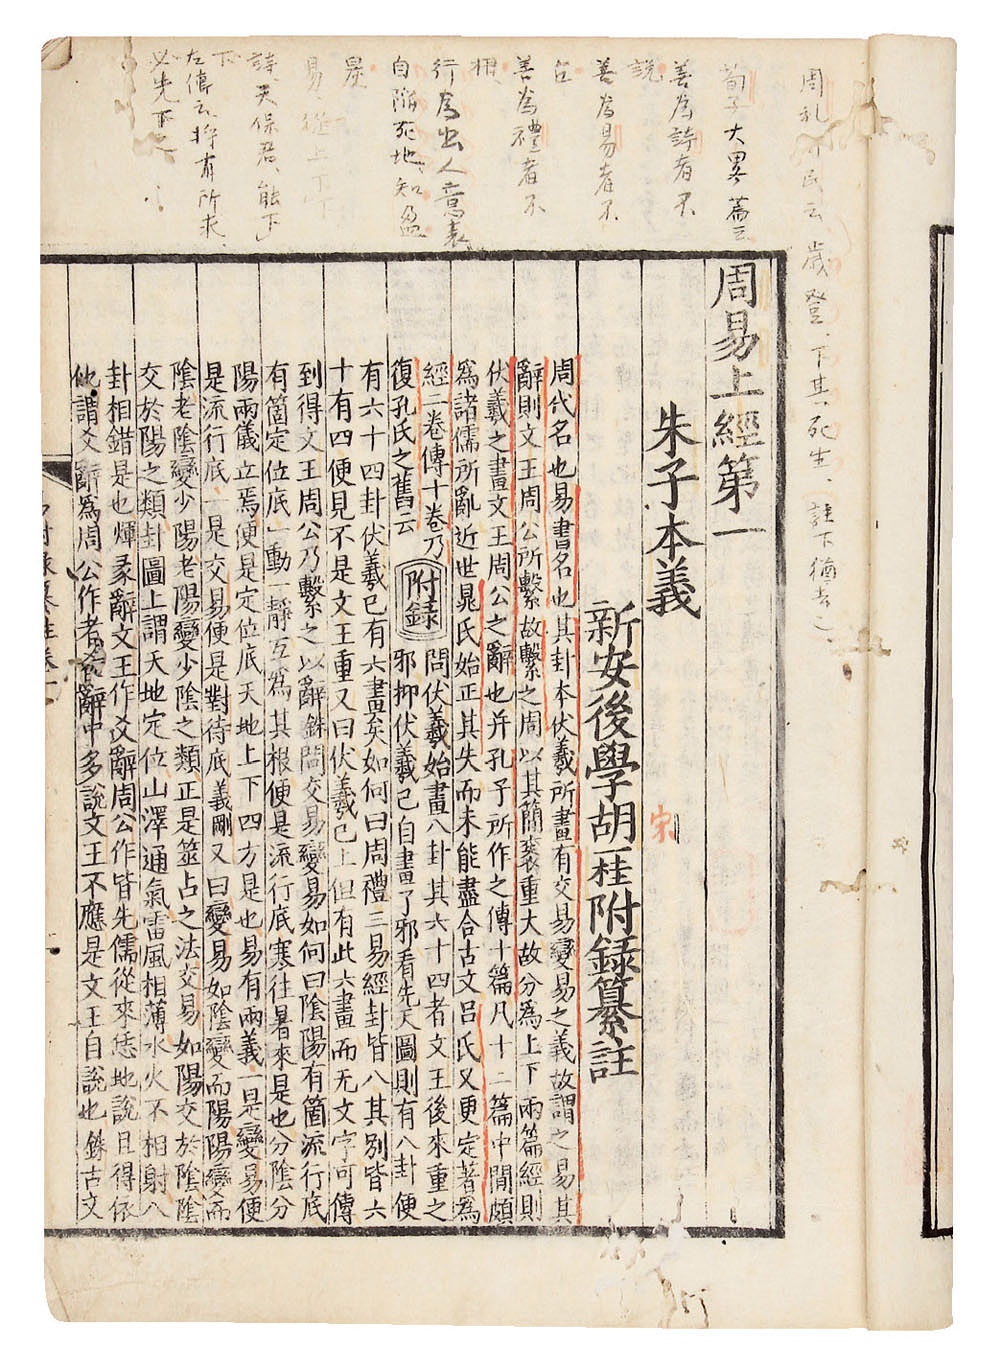 周礼
氏云歲登下其死生註下猶去之
荀子大畧篇云
善為詩者不
說
善為易者不
占
善為禮者不
相
行為出人意表
自陷死地知盈
是
易
上下下
詩天保君能下
下
左傳云將有所求
必先下之
周易上經第一
朱子本義
宋
新安後學胡一桂附録纂註
周代名也易書名也其卦本伏羲所畫有交易變易之義故謂之易其
辭則文王周公所繫故繫之周以其簡袠重大故分為上下兩篇經則
伏羲之畫文王周公之辭也并孔子所作之傳十篇凡十二篇中間頗
為諸儒所亂近世晁氏始正其失而未能盡合古文吕氏又更定著為
經二卷傳十卷乃
復孔氏之舊云
附録
問伏羲始畫八卦其六十四者文王後來重之
邪抑伏羲已自畫了邪看先天圖則有八卦便
有六十四卦伏羲已有六畫矣如何曰周禮三易經卦皆八其別皆六
十有四便見不是文王重又曰伏羲已上但有此六畫而无文字可傳
到得文王周公乃繫之以辭銖問交易變易如何曰陰陽有箇流行底
有箇定位底一動一靜互為其根便是流行底寒往暑來是也分陰分
陽兩儀立焉便是定位底天地上下四方是也易有兩義一是變易便
是流行底一是交易便是對待底義剛又曰變易如陰變而陽陽變而
陰老陰變少陽老陽變少陰之類正是筮占之法交易如陽交於陰陰
交於陽之類卦圖上謂天地定位山澤通氣雷風相薄水火不相射八
卦相錯是也煇彖辭文王作爻辭周公作皆先儒從來恁地說且得依
他謂爻辭為周公作者爻辭中多說文王不應是文王自說也銖古文